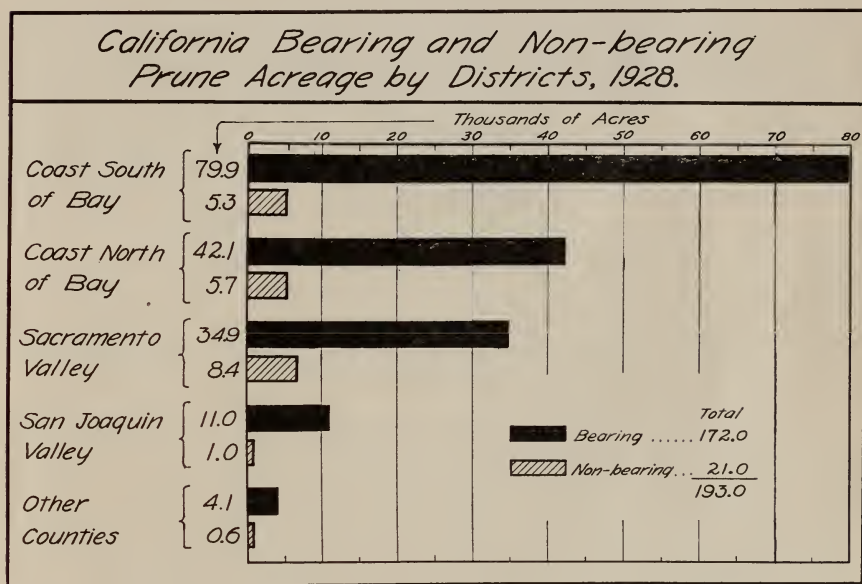 California Bearing and Non-bearing
Prune Acreage by Districts, 1928.
Thousands of Acres
0 10 20 30 40 50 60 70 80
Coast South
of Bay
79.9
5.3
Coast North
of Bay
42.1
5.7
Sacramento
Valley
34.9
8.4
San Joaquin
Valley
11.0
1.0
Other
Counties
4.1
0.6
Total
Bearing ...... 172.0
Non-bearing... 21.0
193.0